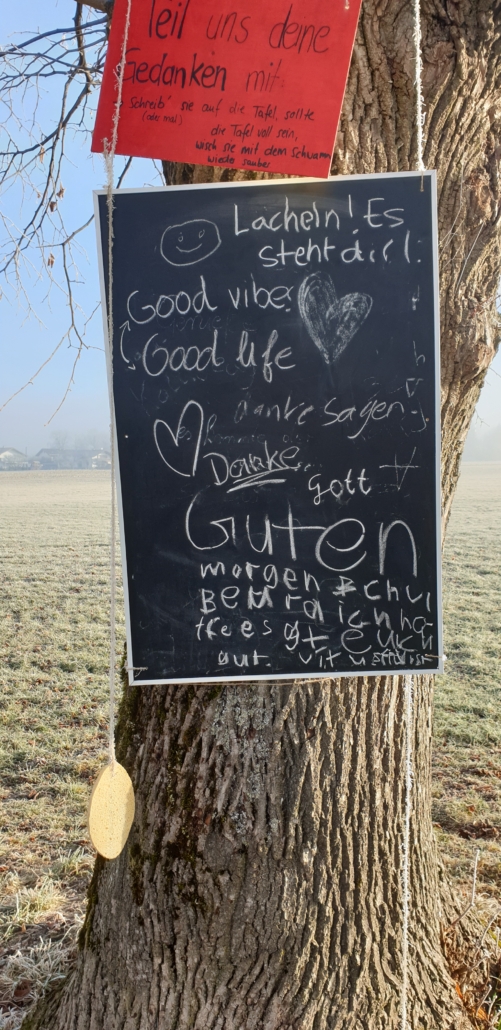 Teil uns deine
Gedanken mit
Schreib' sie auf die Tafel, sollte
(oder mal)
die Tafel voll sein,
wisch sie mit dem Schwamm
wieder sauber
Lächeln! Es
steht dir!
Good vibes
Good life
danke sagen
Danke
Gott
Guten
morgen
ich ho
es gt euch
gut